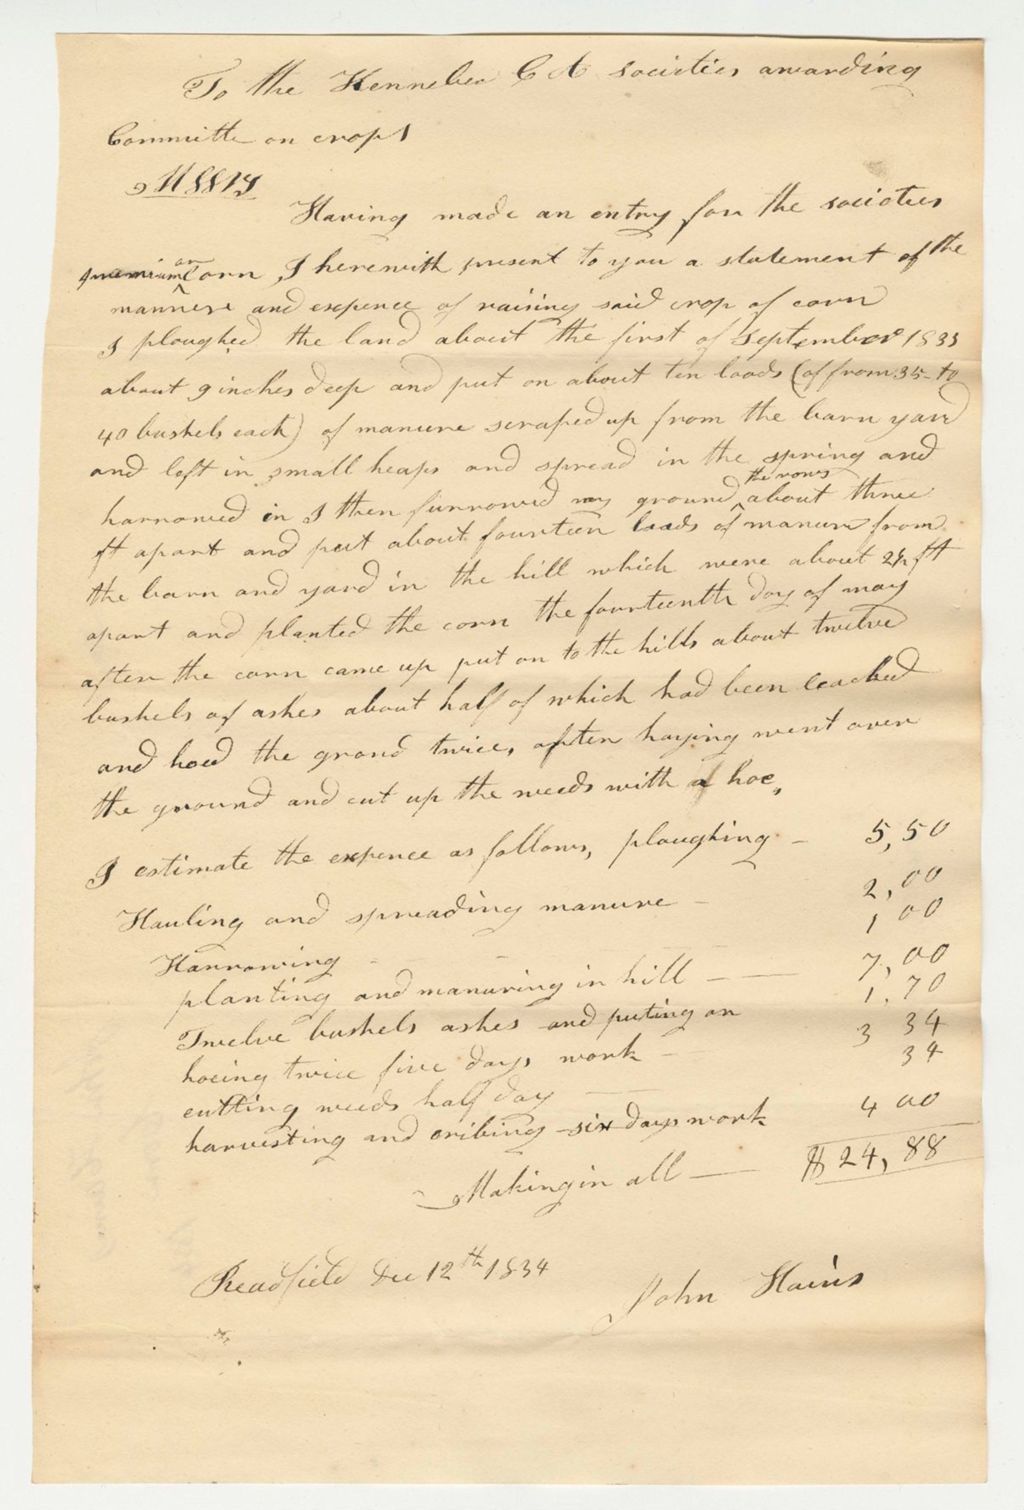 To the Kennebec C A Societies awarding
Committe on crops
Having made an entry for the societies
premium on Corn, I herewith present to you a statement of the
mannere and expence of raising said crop of corn
I ploughed the land about the first of September 1833
about 9 inches deep and put on about ten loads (of from 35 to
40 bushels each) of manure scraped up from the barn yard
and left in small heaps and spread in the spring and
harrowed in I then furrowed my ground the rows about three
ft apart and put about fourteen loads of manure from
the barn and yard in the hill which were about 2½ ft
apart and planted the corn the fourteenth day of may
after the corn came up put on to the hills about twelve
bushels of ashes about half of which had been leached
and hoed the ground twice, after haying went over
the ground and cut up the weeds with a hoe,
I estimate the expence as follows, ploughing - 5,50
Hauling and spreading manure - 2,00
Harrowing - 1 00
planting and manuring in hill - 7,00
Twelve bushels ashes and puting on 1.70
hoeing twice five days work - 3 34
cutting weeds half day 34
harvesting and cribing six days work 4 00
Making in all - $24,88
Readfield Dec 12th 1834
John Hains